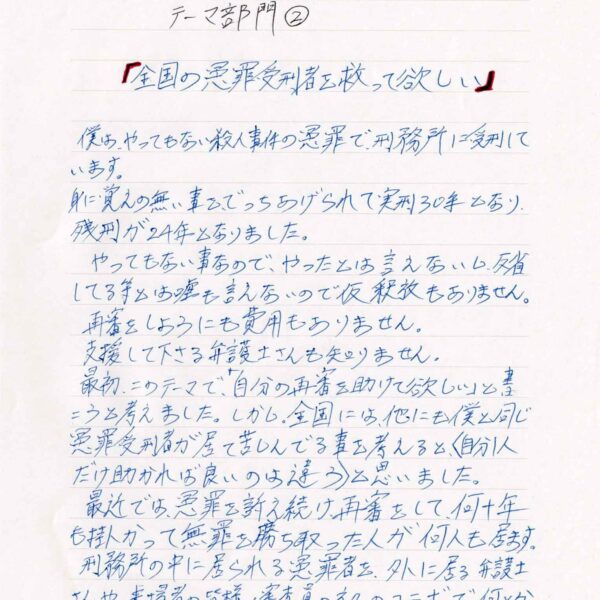 テーマ部門②
『全国の冤罪受刑者を救って欲しい』
僕は、やってもない殺人事件の冤罪で、刑務所に受刑して
います。
身に覚えの無い事をでっちあげられて実刑30年となり、
残刑が24年となりました。
やってもない事なので、やったとは言えないし、反省
してる等とは嘘も言えないので仮釈放もありません。
再審をしようにも費用もありません。
支援して下さる弁護士さんも知りません。
最初、このテーマで、「自分の再審を助けて欲しい」と書
こうと考えました。しかし、全国には、他にも僕と同じ
冤罪受刑者が居て苦しんでる事を考えると、〈自分1人
だけ助かれば良いのは違う〉と思いました。
最近では、冤罪を訴え続け、再審をして、何十年
も掛かって無罪を勝ち取った人が何人も居ます。
刑務所の中に居られる冤罪者を、外に居る弁護士
さんや、来場者の皆様、審査員の